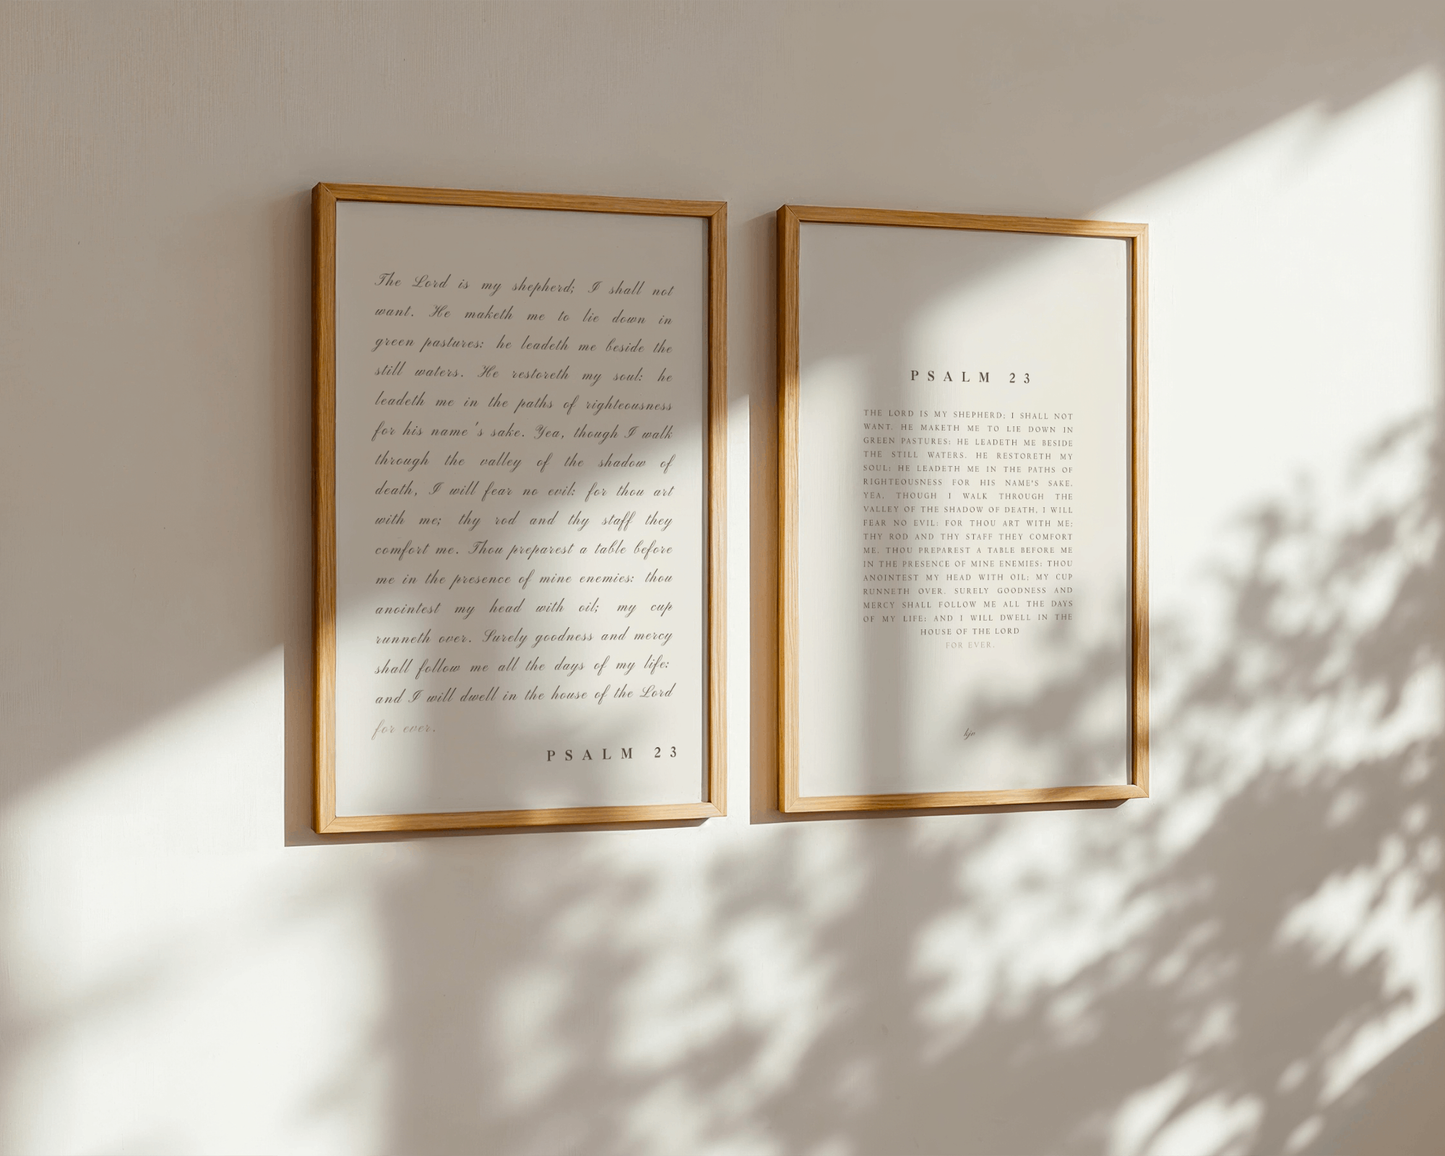 The Lord is my shepherd; I shall not
want. He maketh me to lie down in
green pastures: he leadeth me beside the
still waters. He restoreth my soul: he
leadeth me in the paths of righteousness
for his name's sake. Yea, though I walk
through the valley of the shadow of
death, I will fear no evil: for thou art
with me; thy rod and thy staff they
comfort me. Thou preparest a table before
me in the presence of mine enemies: thou
anointest my head with oil; my cup
runneth over. Surely goodness and mercy
shall follow me all the days of my life:
and I will dwell in the house of the Lord
for ever.
PSALM 23
PSALM 23
THE LORD IS MY SHEPHERD; I SHALL NOT
WANT. HE MAKETH ME TO LIE DOWN IN
GREEN PASTURES: HE LEADETH ME BESIDE
THE STILL WATERS. HE RESTORETH MY
SOUL: HE LEADETH ME IN THE PATHS OF
RIGHTEOUSNESS FOR HIS NAME'S SAKE.
YEA, THOUGH I WALK THROUGH THE
VALLEY OF THE SHADOW OF DEATH, I WILL
FEAR NO EVIL: FOR THOU ART WITH ME;
THY ROD AND THY STAFF THEY COMFORT
ME. THOU PREPAREST A TABLE BEFORE ME
IN THE PRESENCE OF MINE ENEMIES: THOU
ANOINTEST MY HEAD WITH OIL; MY CUP
RUNNETH OVER. SURELY GOODNESS AND
MERCY SHALL FOLLOW ME ALL THE DAYS
OF MY LIFE: AND I WILL DWELL IN THE
HOUSE OF THE LORD
FOR EVER.